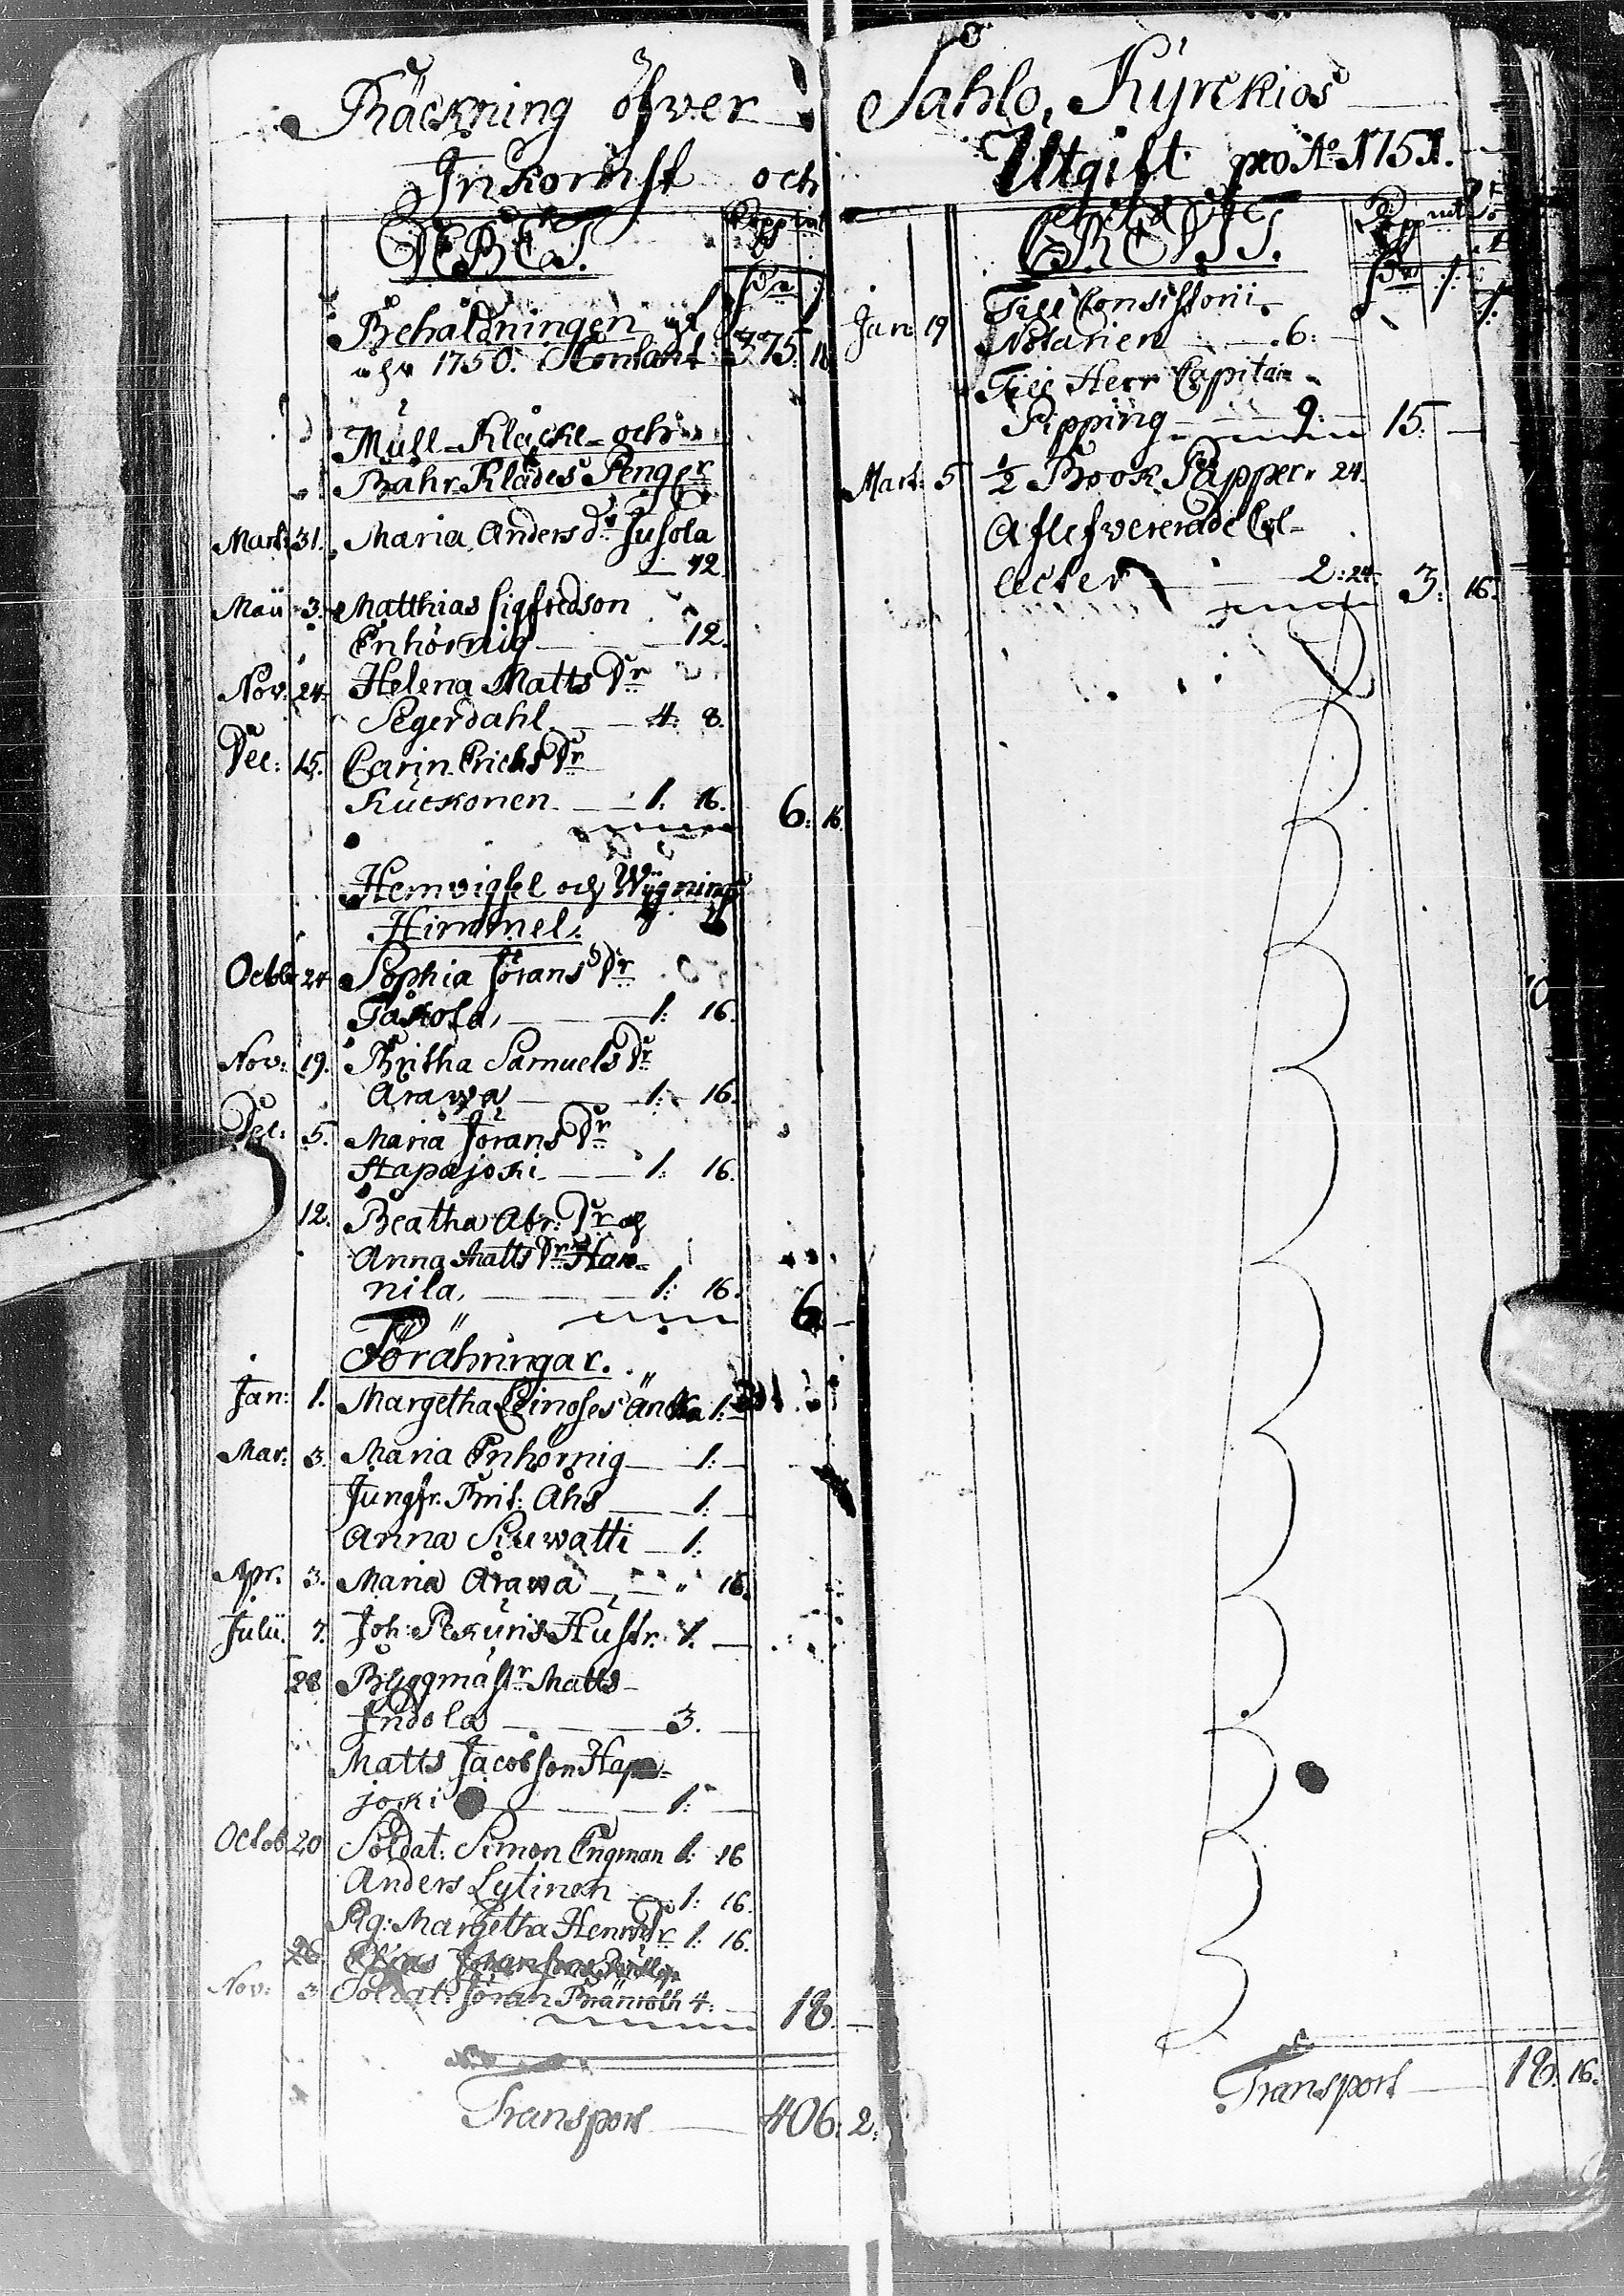 Räckning öfver
Inkomst och
DEBET.
Kopp mt
Behåldningen af
åhr 1750. Contant 375: 18
Mull- Klåcke- och
Båhr-Klädes Penger
Mart: 31. Maria Anders dr Jusola
12.
Maii 3. Matthias Sigfredson
Enhörnig 12.
Nov: 24. Helena Matts Dr
Segerdahl 4: 8.
Dec: 15. Carin Erichs Dr
Kuckonen 1: 16. 6: 16.
och Wÿgnings
Himmel.
Octob 24 Sophia Jörans Dr
Taskola, 1: 16.
Nov: 19. Britha Samuels Dr
Arawa 1: 16.
Dec: 5. Maria Jörans Dr
Hapajoki 1: 16.
12. Beatha Abr: Dr och
Anna Matts Dr Han-
nila, 1: 16. 6. —
Föräringar.
Jan: 1. Margetha Änka 1: —
Mar: 3. Maria Enhörnig 1: —
Jungfr. Brit: Ahs 1: —
Anna Siuwatti 1:
Apr. 3. Maria Arawa " 16.
Julii. 7. Joh: Pekuris Hustr. 1. —
28 Byggmästr Matts
Indola 3. —
Matts Jacobson Hapa-
joki 1: —
Octob 20 Soldat: Simon Engman 1: 16
Anders Lytinen 1: 16.
Pig: Margetha Henr Dr 1: 16.
Nov: 3 Soldat: Jöran Branroth 4: — 18. —
Transport 406: 2.
Sahlo, Kyrckios
Utgift pro Ao 1751.
CREDIT.
Kopp mt
Jan: 19 Till Consistorii
Notarien 6: —
Till Herr Capitain
Pipping 9: — 15. —
Mart: 5 1/2 Book Papper 24.
Aflefvererade Col-
lecter 2: 24. 3: 16.
Transport 18. 16.